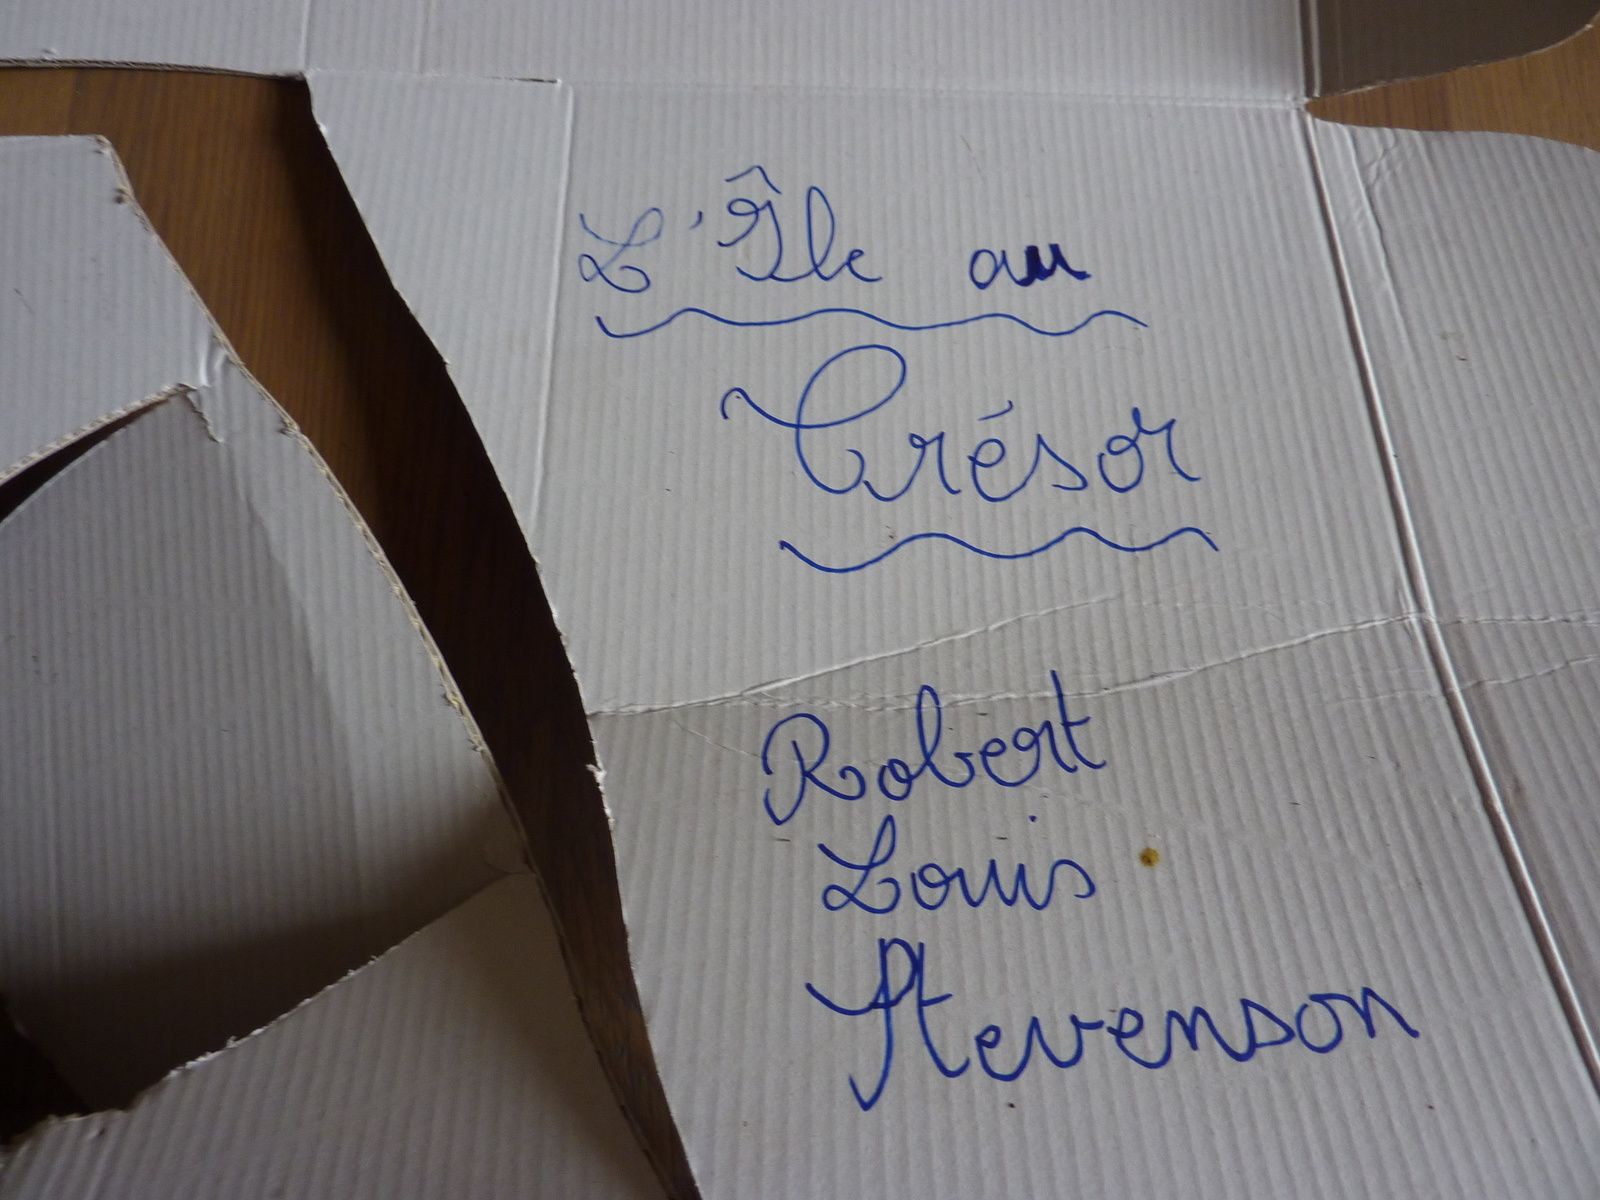 L'Île au
Trésor
Robert
Louis
Stevenson